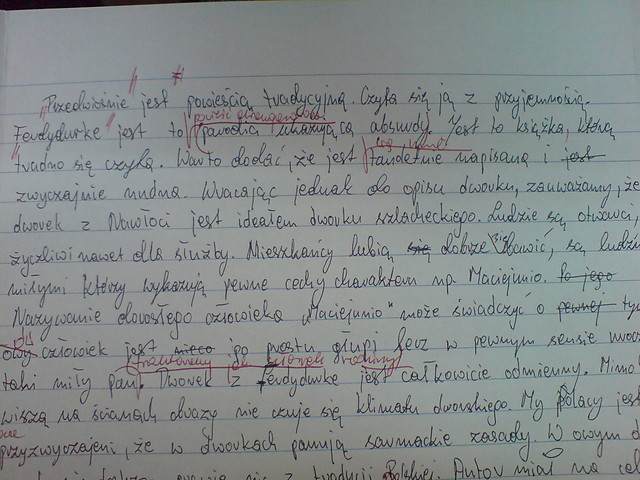 "Przedwiośnie" jest powieścią tradycyjną. Czyta się ją z przyjemnością.
"Ferdydurke" jest to parodia ukazująca absurdy. Jest to książka, którą
trudno się czyta. Warto dodać, że jest tandetnie napisana i jest
zwyczajnie nudna. Wracając jednak do opisu dworku, zauważamy, że
dworek z Nawłoci jest ideałem dworku szlacheckiego. Ludzie są otwarci,
życzliwi nawet dla służby. Mieszkańcy lubią się dobrze bawić, są ludźmi
miłymi którzy wykazują pewne cechy charakteru np. Maciejunio. to jego
Nazywanie dorosłego człowieka "Maciejunio" może świadczyć o pewnej
owy człowiek jest nieco po prostu głupi lecz w pewnym sensie
taki miły pan. Dworek z Ferdydurke jest całkowicie odmienny. Mimo
wiszą na ścianach obrazy nie czuje się klimatu dworskiego. My Polacy
przyzwyczajeni, że w dworkach panują sarmackie zasady. W owym
się z tradycji Polskiej. Autor miał na